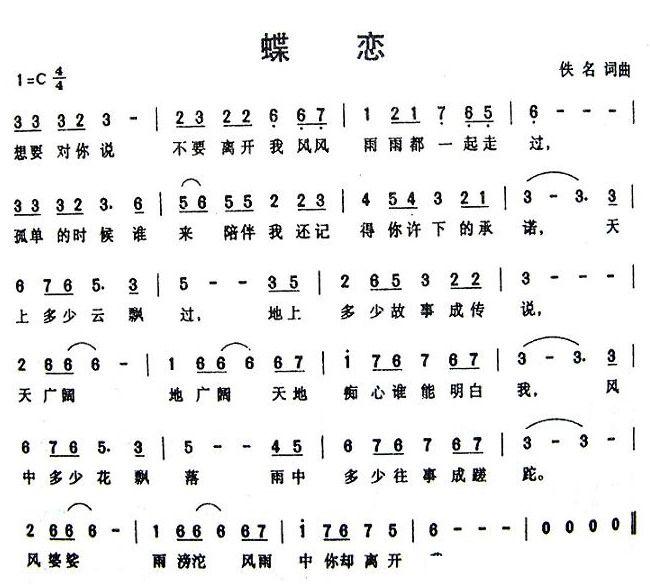 蝶 恋
1=C 4/4
佚名 词曲
33 32 3 - | 23 22 6 67 | 1 21 7 65 | 6 - - - |
想要 对你 说 不要 离开 我 风风 雨 雨都 一 起走 过,
33 32 3· 6 | 56 55 2 23 | 4 54 3 21 | 3 - 3· 3 |
孤单 的时 候 谁 来 陪伴 我 还记 得 你许 下 的承 诺, 天
6 76 5· 3 | 5 - - 35 | 2 65 3 22 | 3 - - - |
上 多少 云 飘 过, 地上 多 少故 事 成传 说,
2 66 6 - | 1 66 6 67 | i 76 7 67 | 3 - 3· 3 |
天 广阔 地 广阔 天地 痴 心谁 能 明白 我, 风
6 76 5· 3 | 5 - - 45 | 6 76 7 67 | 3 - 3 - |
中 多少 花 飘 落 雨中 多 少往 事 成蹉 跎。
2 66 6 - | 1 66 6 67 | i 76 7 5 | 6 - - - | 0 0 0 0 ‖
风 婆娑 雨 滂沱 风雨 中 你却 离 开